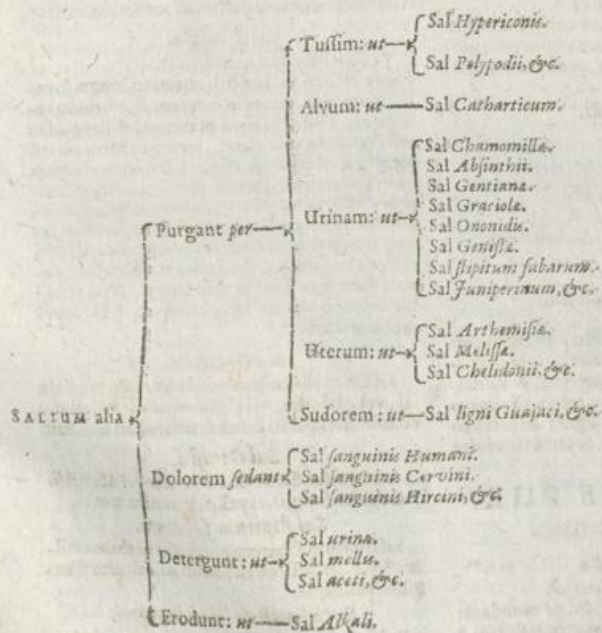 SALIUM alia
Purgant per
Tuſſim: ut
Sal Hypericonis.
Sal Polypodii, &c.
Alvum: ut
Sal Catharticum.
Urinam: ut
Sal Chamomillæ.
Sal Abſinthii.
Sal Gentianæ.
Sal Graciolæ.
Sal Ononidis.
Sal Geniſtæ.
Sal ſtipitum fabarum.
Sal Juniperinum, &c.
Uterum: ut
Sal Arthemiſiæ.
Sal Meliſſæ.
Sal Chelidonii, &c.
Sudorem: ut
Sal ligni Guajaci, &c.
Dolorem ſedant
Sal ſanguinis Humani.
Sal ſanguinis Cervini.
Sal ſanguinis Hircini, &c.
Detergunt: ut
Sal urinæ.
Sal mellis.
Sal aceti, &c.
Erodunt: ut
Sal Alkali.